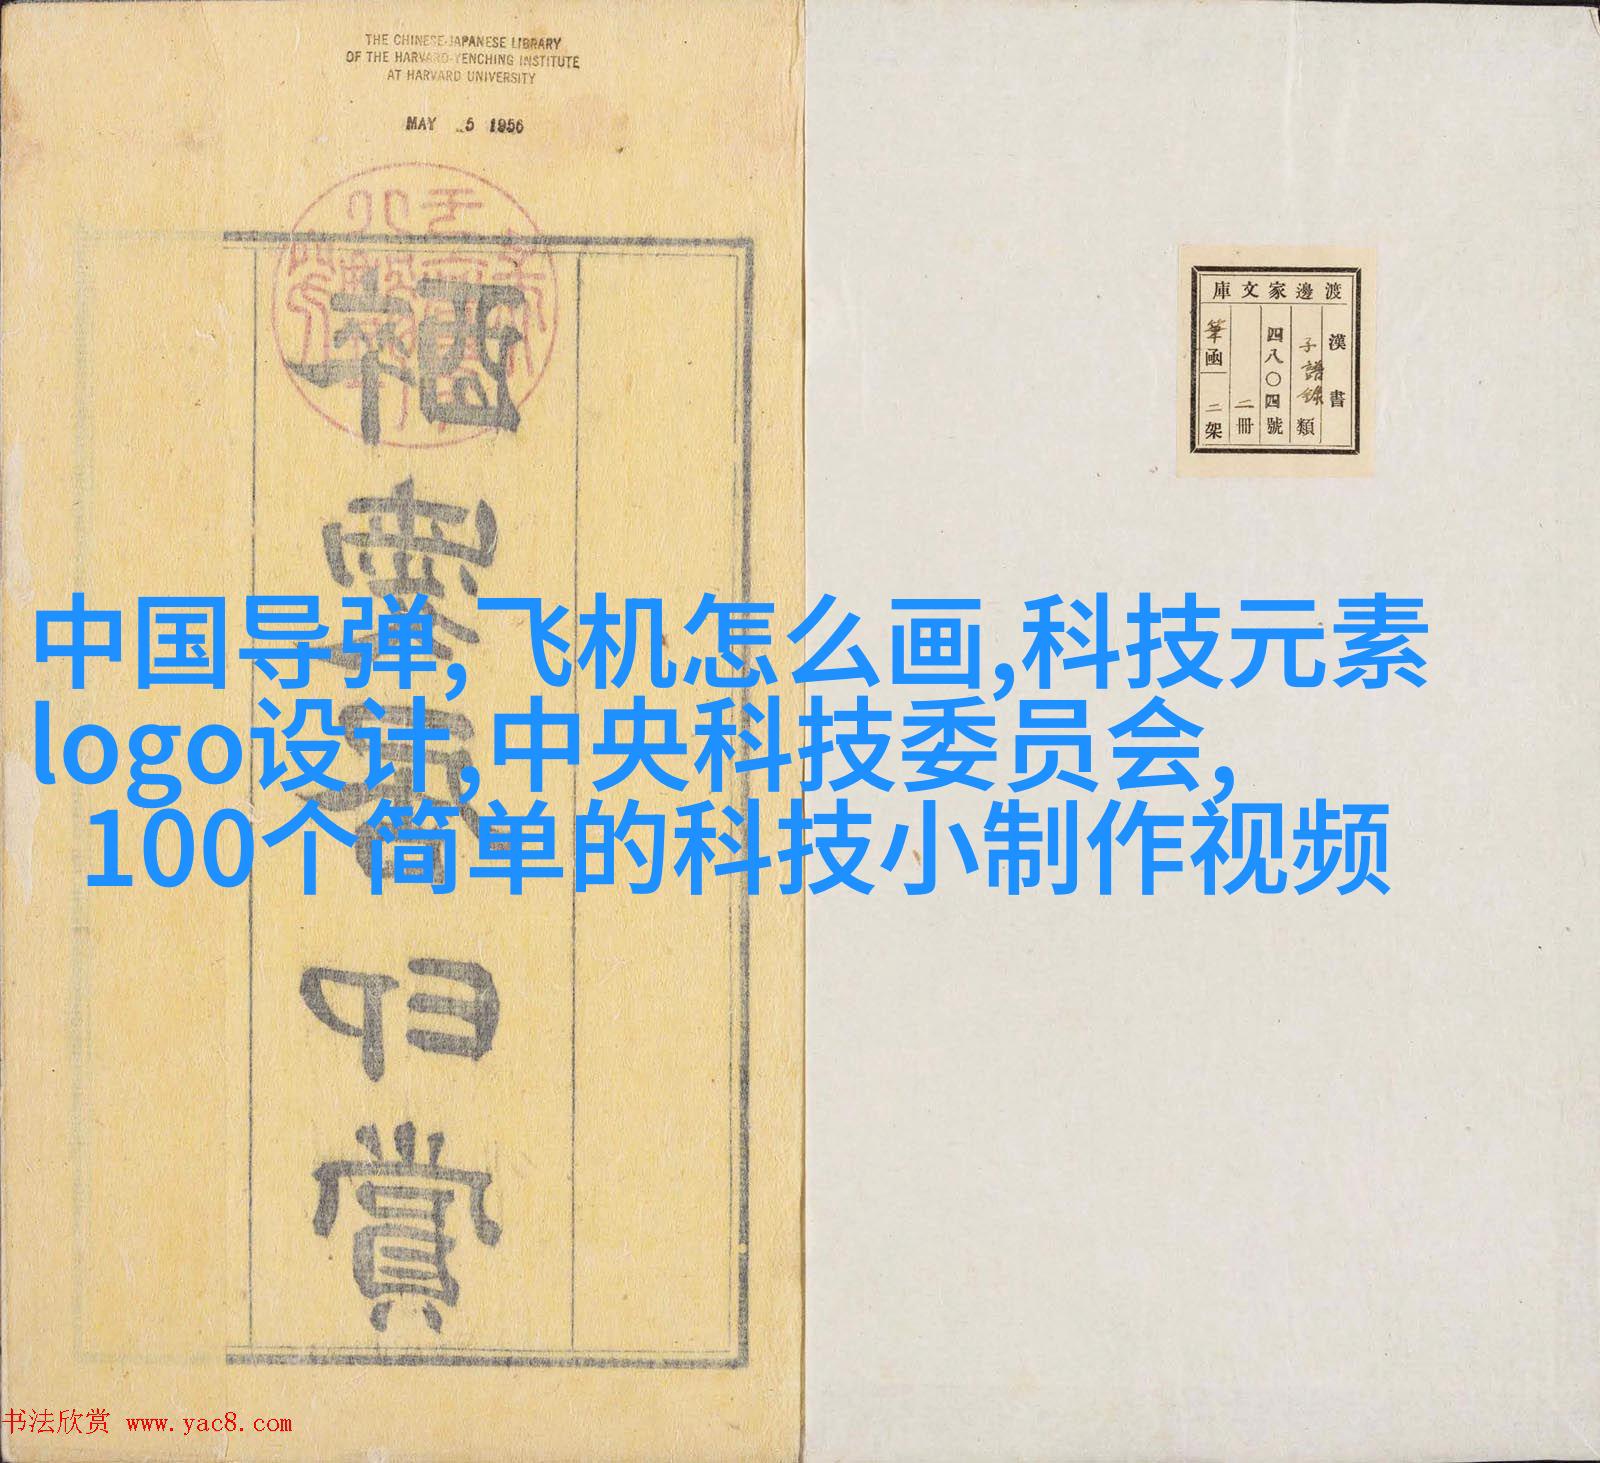 THE CHINESE-JAPANESE LIBRARY
OF THE HARVARD-YENCHING INSTITUTE
AT HARVARD UNIVERSITY
MAY 5 1956
印賞
渡邊家文庫
漢書
子譜錄類
四八〇四號
二冊
筆函二架
中国导弹,飞机怎么画,科技元素
logo设计,中央科技委员会,
100个简单的科技小制作视频
书法欣赏 www.yac8.com